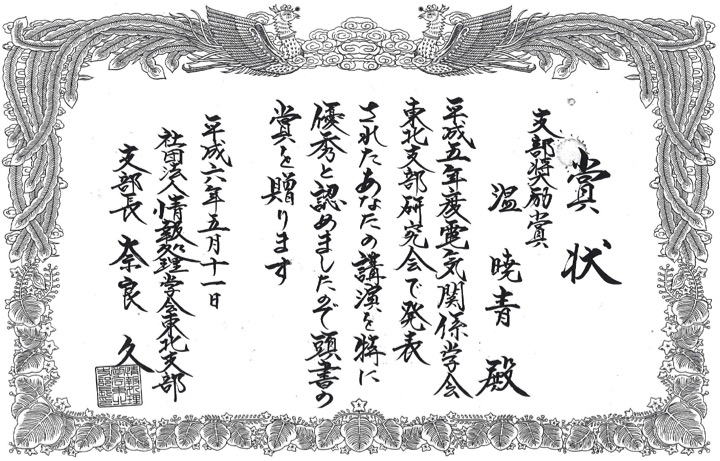 賞状
支部奨励賞
温 暁青 殿
平成五年度電気関係学会
東北支部研究会で発表
されたあなたの講演を特に
優秀と認めましたので頭書の
賞を贈ります
平成六年五月十一日
社団法人情報処理学会東北支部
支部長 奈良 久